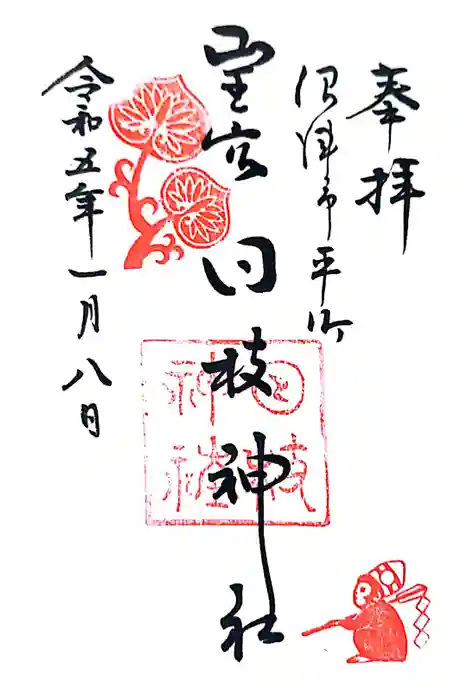 奉拝
沼津市平町
日枝神社
令和五年一月八日
日枝
神社